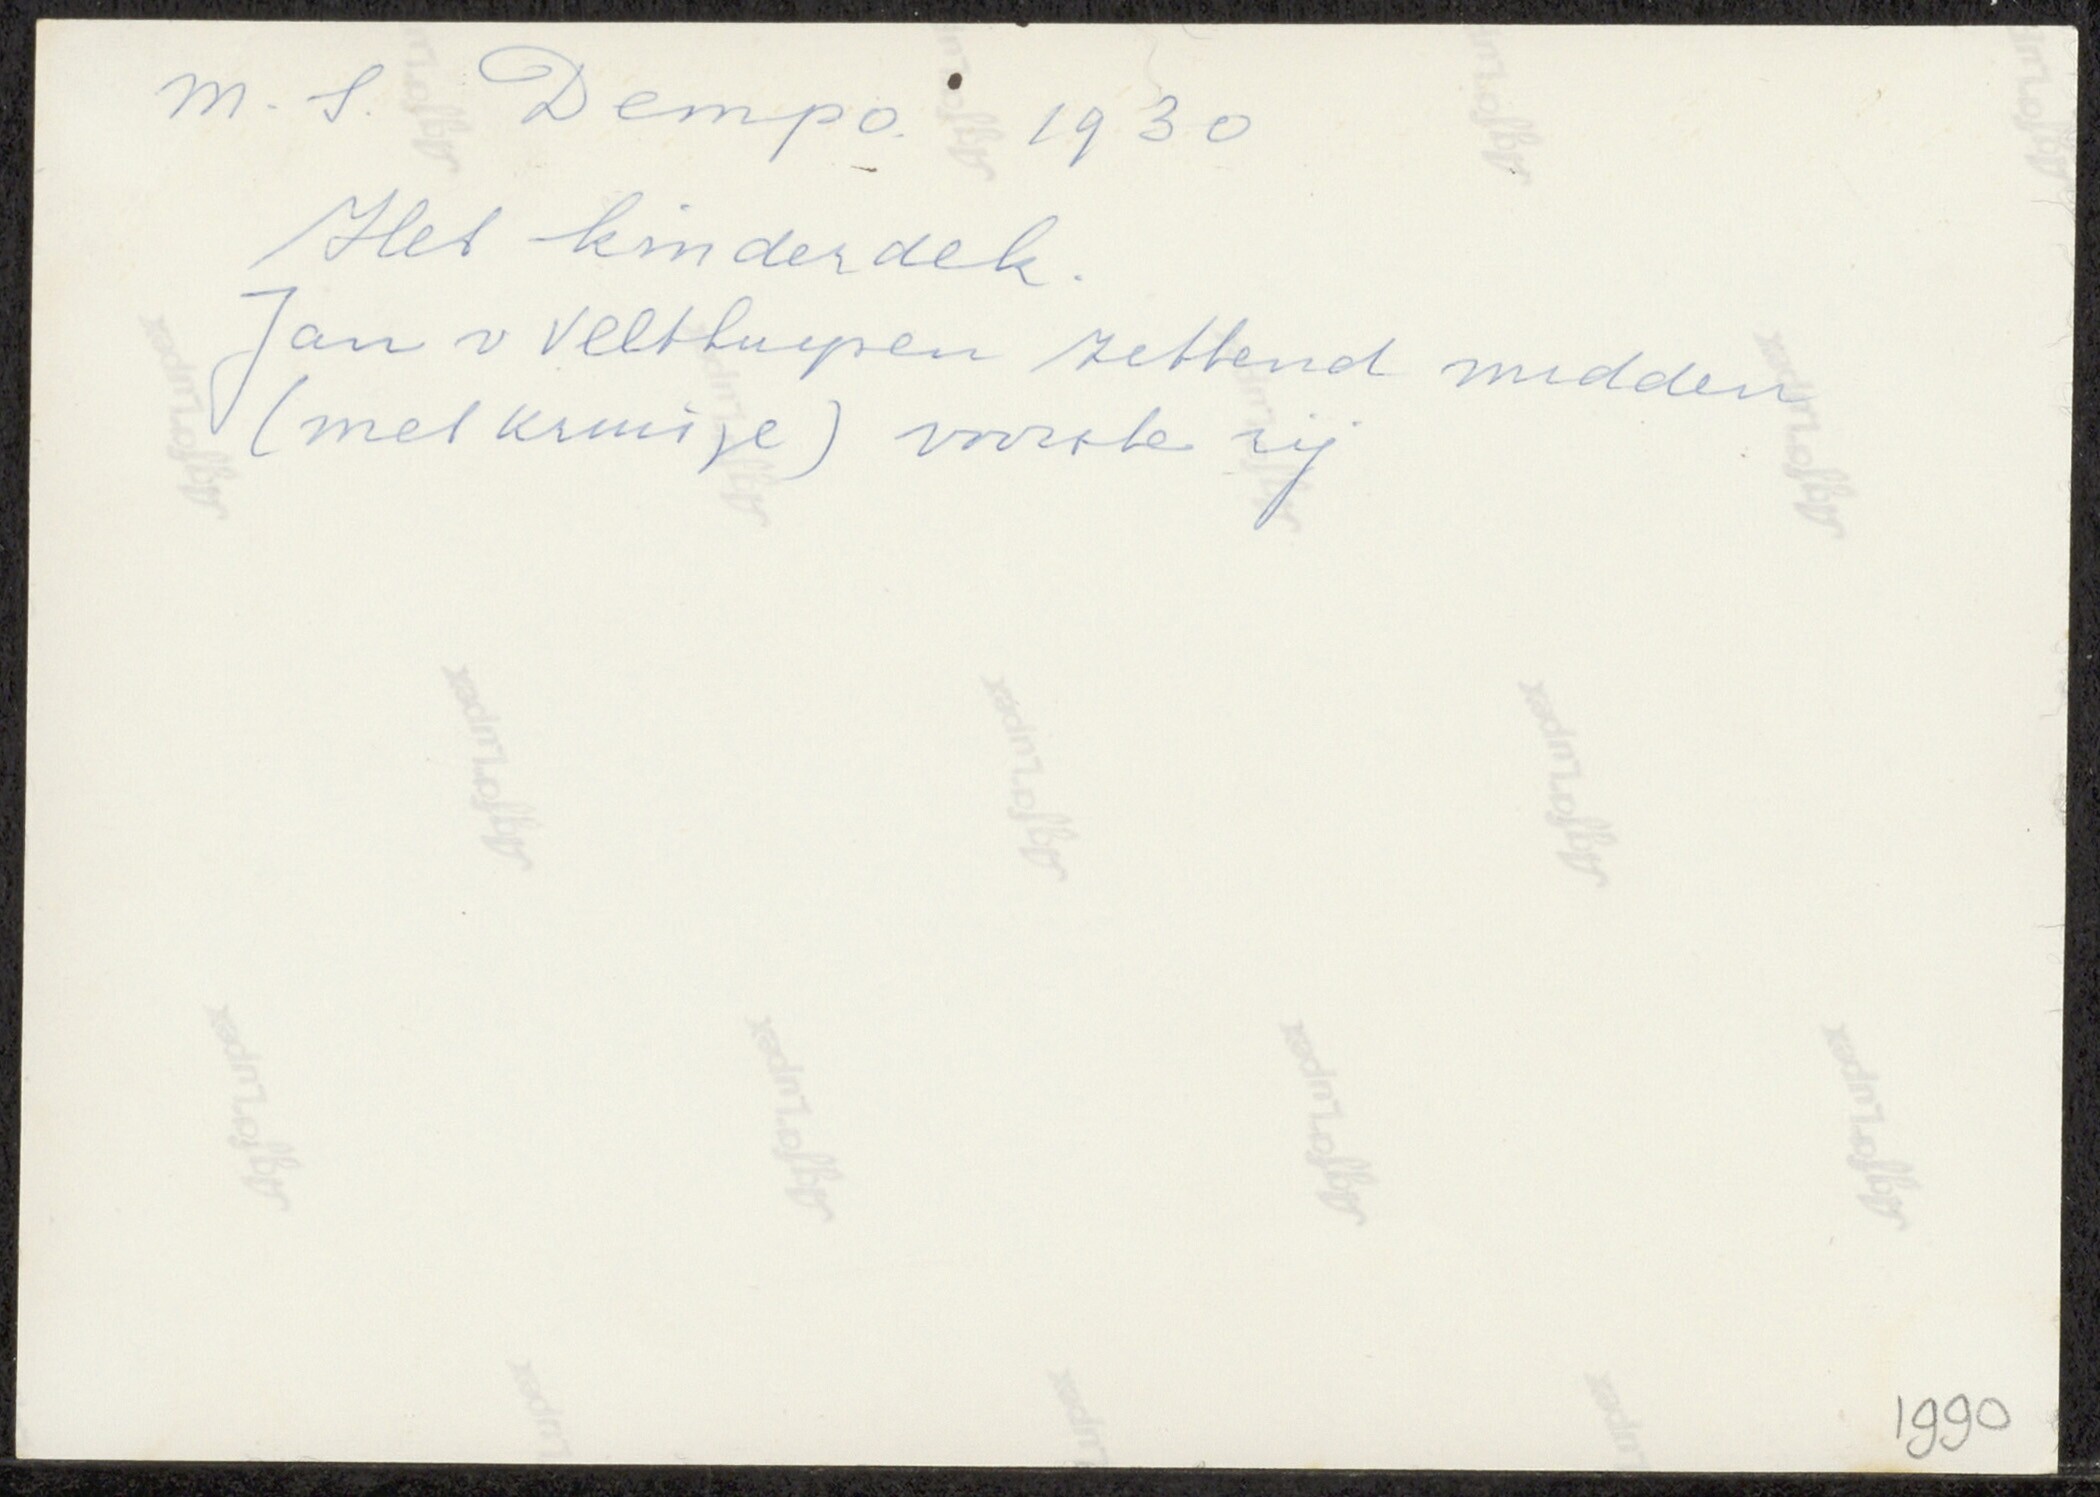 M. S. Dempo. 1930
Het kinderdek.
Jan v Velthuysen zittend midden
(met kruisje) voorste rij
1990
Agfa Lupex